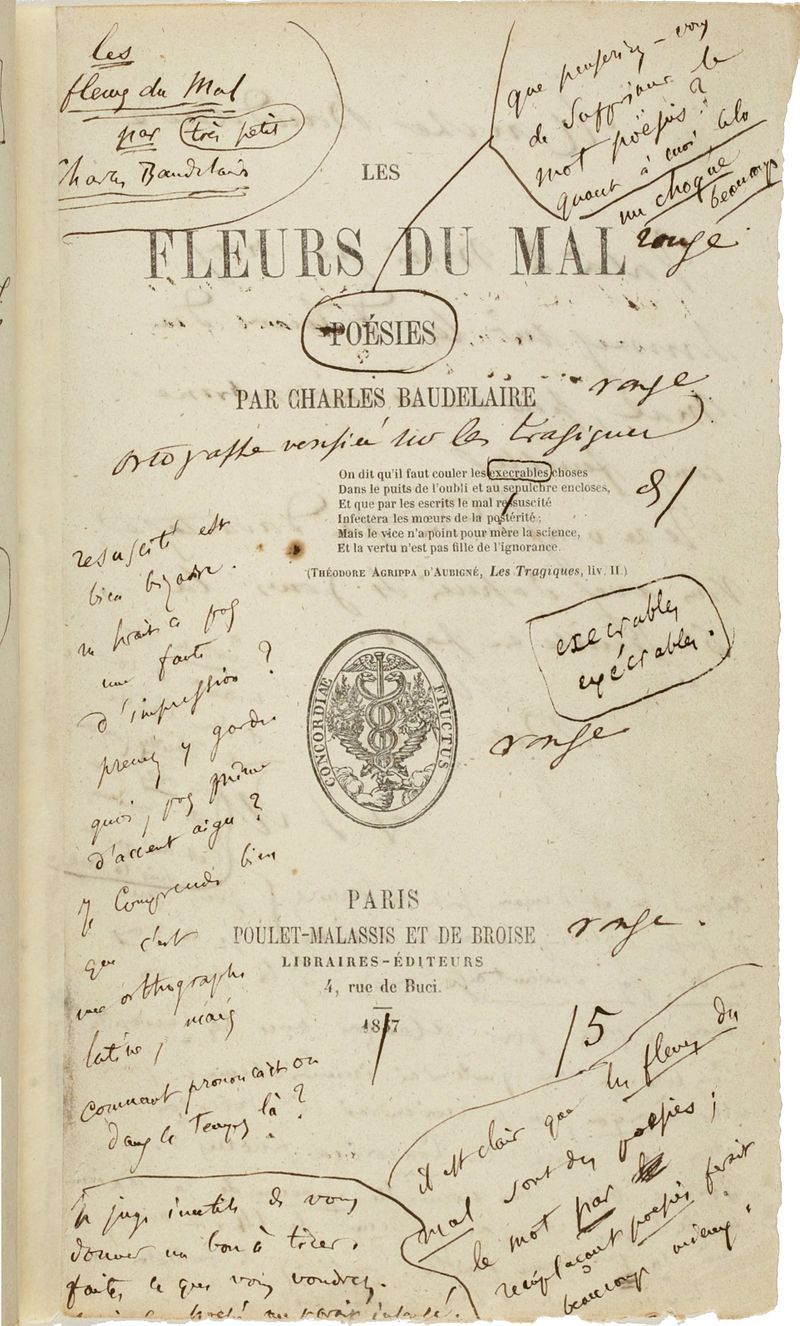 les
fleurs du Mal
par très petit
Charles Baudelaire
que penseriez-vous
de supprimer le
mot poësies ?
quant à moi, cela
me choque
beaucoup
LES
FLEURS DU MAL
rouge
POÉSIES
PAR CHARLES BAUDELAIRE
rouge
ortografe vérifiée sur les tragiques
On dit qu'il faut couler les execrables choses
Dans le puits de l'oubli et au sepulchre encloses,
Et que par les escrits le mal ressuscité
Infectera les mœurs de la postérité ;
Mais le vice n'a point pour mère la science,
Et la vertu n'est pas fille de l'ignorance.
(THÉODORE AGRIPPA D'AUBIGNÉ, Les Tragiques, liv. II.)
resuscité est
bien bizarre.
ne serait-ce pas
une faute
d'impression ?
prenez y garde
quoi, pas même
d'accent aigu ?
je comprends bien
que c'est
une orthographe
latine, mais
comment prononçait-on
dans le temps là ?
execrables
exécrables.
CONCORDIAE FRUCTUS
rouge
PARIS
POULET-MALASSIS ET DE BROISE
rouge.
LIBRAIRES-ÉDITEURS
4, rue de Buci.
1857
/5
il est clair que les fleurs du
mal sont des poësies ;
le mot par
remplaçant poësies ferait
beaucoup mieux.
Je juge inutile de vous
donner un bon à tirer.
faites ce que vous voudrez.